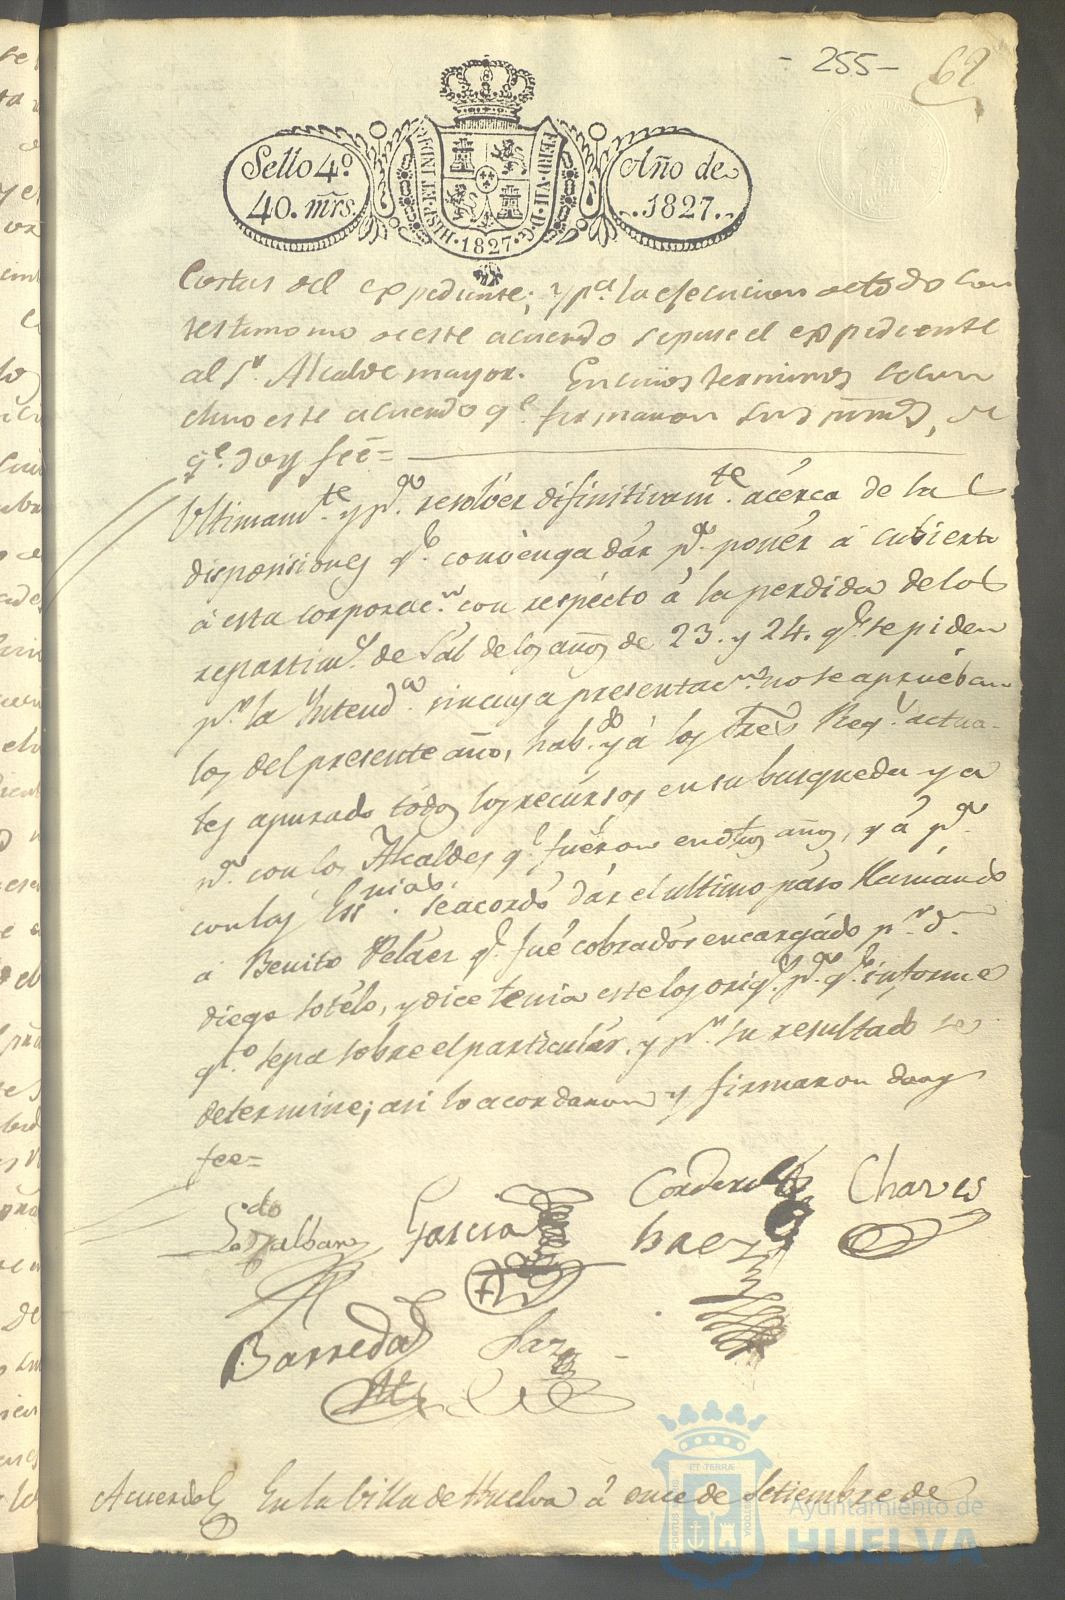 - 255 -
62
Sello 4º
40. mrs.
FERD. VII. D. G. HISP. ET IND. R.
1827.
Año de
1827.
Costas del expediente; y pª la ejecucion de todo con
testimonio de este acuerdo se pase el expediente
al Sr. Alcalde mayor. En cuios terminos se con
cluio este acuerdo qe. firmaron sus mrds, de
qe. doy feé=
Ultimamte. y pª. resolver difinitivamte. acerca de las
disposiciones qe. convenga dár pª. ponér á cubierto
á esta corporacn. con respécto á la perdida de los
repartims. de Sal de los años de 23. y 24. qe. se piden
pr. la Intendª. sin cuya presentacn. no se aprueban
los del presente año, habdo. yá los tres Regs. actua-
les apurado tódos los recursos en su busqueda ya
pª. con los Alcaldes qe. fueron en dhos años, yá pª.
con los Essnias. se acordó dár el ultimo páso llamando
á Benito Pelaez qe. fué cobradór encargádo pr. dn.
diego Sotélo, y dice tenia este los origs. pª. qe. informe
qto. sepa sobre el particulár, y pr. su resultádo se
determine; asi lo acordaron y firmaron doy
fee=
Garcia
Cordero
Chaves
Baez
Barreda
Paz
Acuerdo En la Villa de Huelva á once de Setiembre de
ET TERRÆ
PORTUS
CUSTODIA
Ayuntamiento de
HUELVA